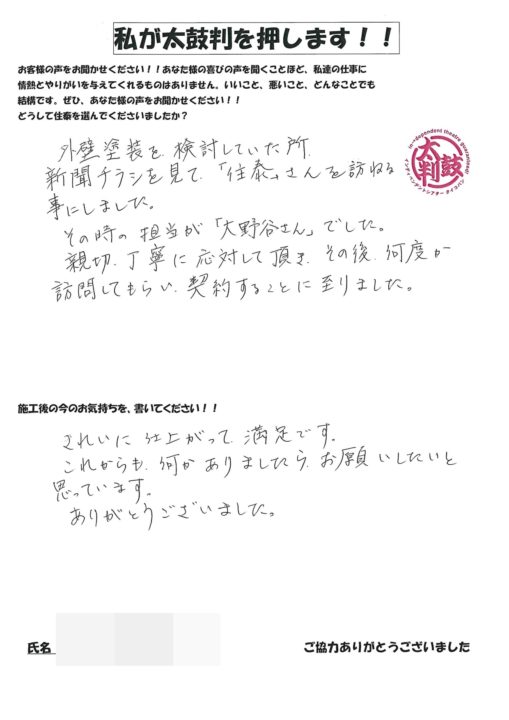 私が太鼓判を押します！！
お客様の声をお聞かせください！！あなた様の喜びの声を聞くことほど、私達の仕事に
情熱とやりがいを与えてくれるものはありません。いいこと、悪いこと、どんなことでも
結構です。ぜひ、あなた様の声をお聞かせください！！
どうして住泰を選んでくださいましたか？
外壁塗装を、検討していた所、
新聞チラシを見て、「住泰」さんを訪ねる
事にしました。
その時の担当が「大野谷さん」でした。
親切、丁寧に応対して頂き、その後、何度か
訪問してもらい、契約することに至りました。
太鼓判
施工後の今のお気持ちを、書いてください！！
きれいに仕上がって、満足です。
これからも、何かありましたら、お願いしたいと
思っています。
ありがとうございました。
氏名
ご協力ありがとうございました